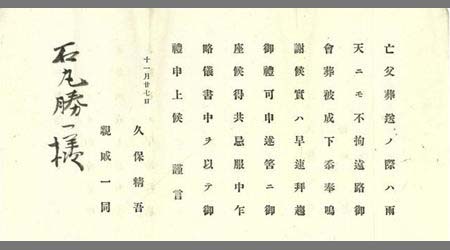 亡父葬送ノ際ハ雨
天ニモ不拘遠路御
會葬被成下忝奉鳴
謝候實ハ早速拜趨
御禮可申述筈ニ御
座候得共忌服中乍
略儀書中ヲ以テ御
禮申上候　謹言
十一月廿七日
久保精吾
親戚一同
石丸勝一様